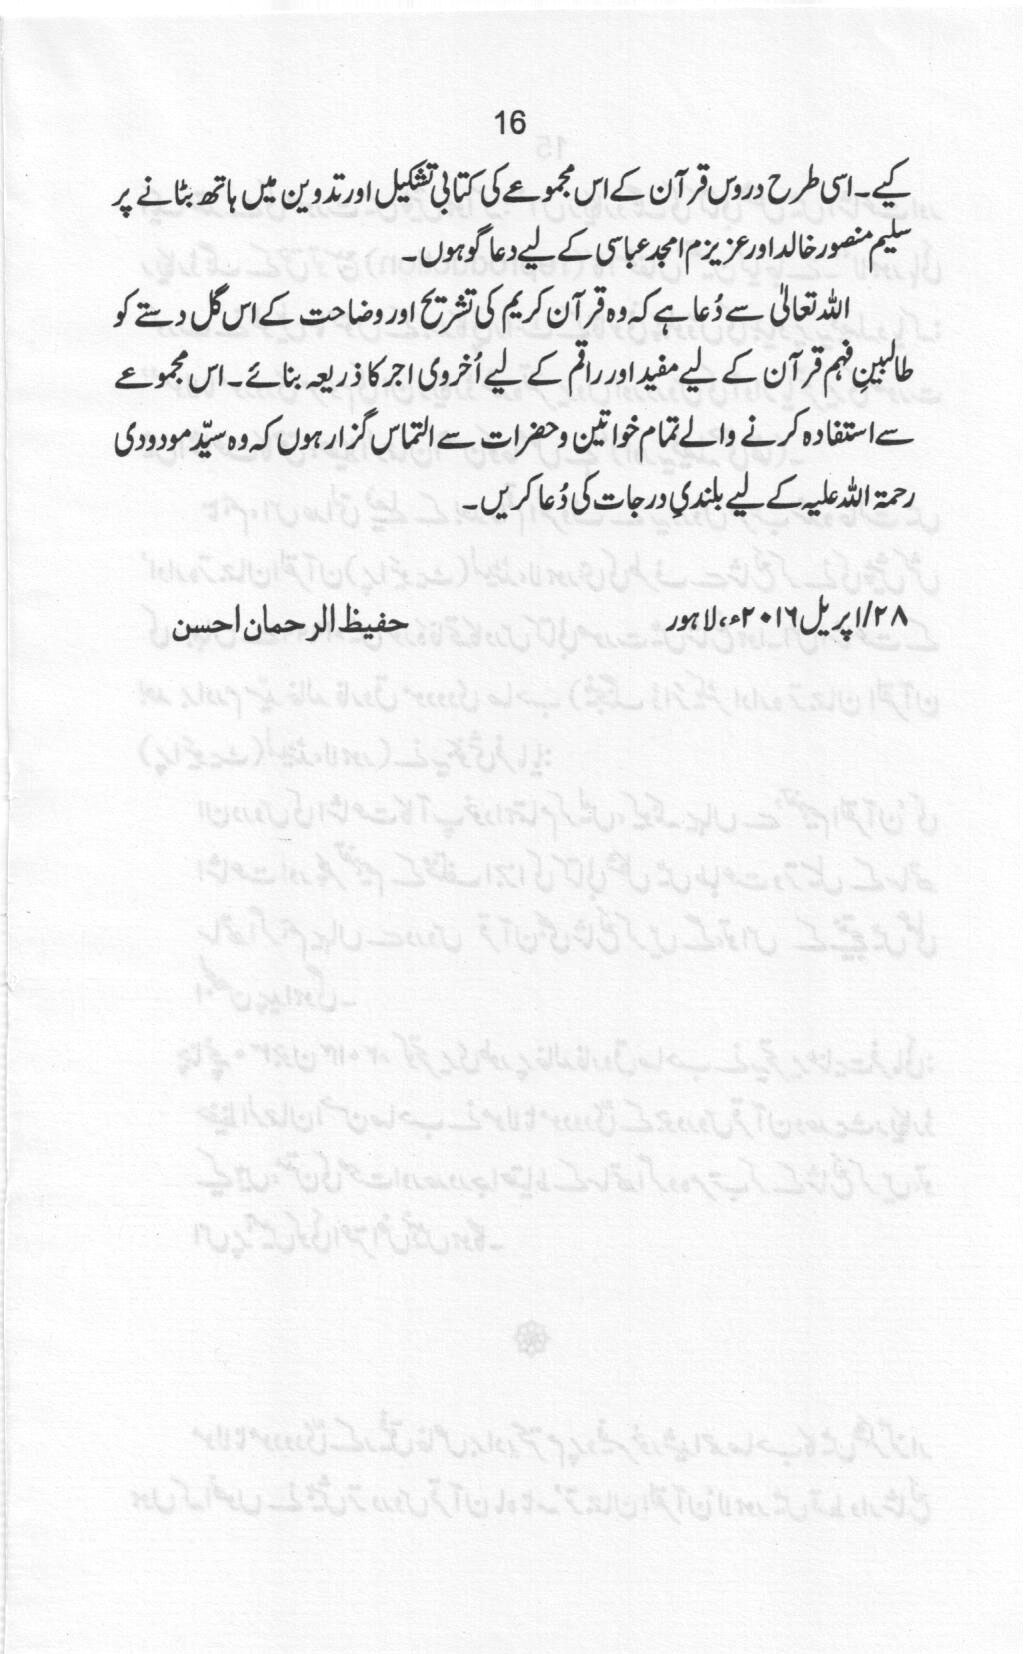 16
کیے۔ اسی طرح دروس قرآن کے اس مجموعے کی کتابی تشکیل اور تدوین میں ہاتھ بٹانے پر
سلیم منصور خالد اور عزیزم امجد عباسی کے لیے دعا گو ہوں۔
اللہ تعالیٰ سے دُعا ہے کہ وہ قرآن کریم کی تشریح اور وضاحت کے اس گل دستے کو
طالبینِ فہم قرآن کے لیے مفید اور راقم کے لیے اُخروی اجر کا ذریعہ بنائے۔ اس مجموعے
سے استفادہ کرنے والے تمام خواتین و حضرات سے التماس گزار ہوں کہ وہ سیّد مودودی
رحمۃ اللہ علیہ کے لیے بلندیِ درجات کی دُعا کریں۔
۲۸/اپریل ۲۰۱۶ء، لاہور حفیظ الرحمان احسن